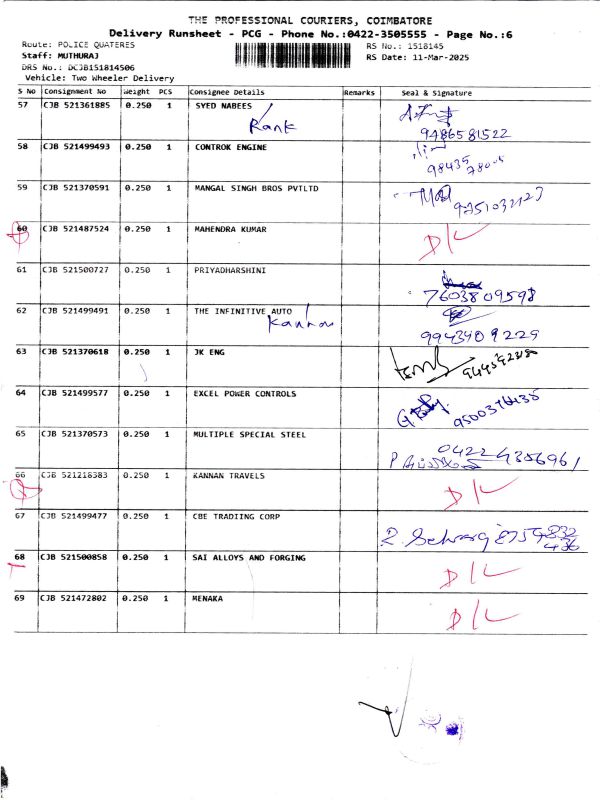 THE PROFESSIONAL COURIERS, COIMBATORE
Delivery Runsheet - PCG - Phone No.:0422-3505555 - Page No.:6
Route: POLICE QUATERES
RS No.: 1518145
Staff: MUTHURAJ
RS Date: 11-Mar-2025
DRS No.: DCJB151814506
Vehicle: Two Wheeler Delivery
S No Consignment No Weight PCS Consignee Details Remarks Seal & Signature
57 CJB 521361885 0.250 1 SYED NABEES
9486581522
58 CJB 521499493 0.250 1 CONTROK ENGINE
59 CJB 521370591 0.250 1 MANGAL SINGH BROS PVTLTD
9751032123
60 CJB 521487524 0.250 1 MAHENDRA KUMAR D/L
61 CJB 521500727 0.250 1 PRIYADHARSHINI
7603809598
62 CJB 521499491 0.250 1 THE INFINITIVE AUTO
9943909229
63 CJB 521370618 0.250 1 JK ENG
64 CJB 521499577 0.250 1 EXCEL POWER CONTROLS
65 CJB 521370573 0.250 1 MULTIPLE SPECIAL STEEL
0422 4356961
66 CJB 521218383 0.250 1 KANNAN TRAVELS D/L
67 CJB 521499477 0.250 1 CBE TRADIING CORP
68 CJB 521500858 0.250 1 SAI ALLOYS AND FORGING D/L
69 CJB 521472802 0.250 1 MENAKA D/L